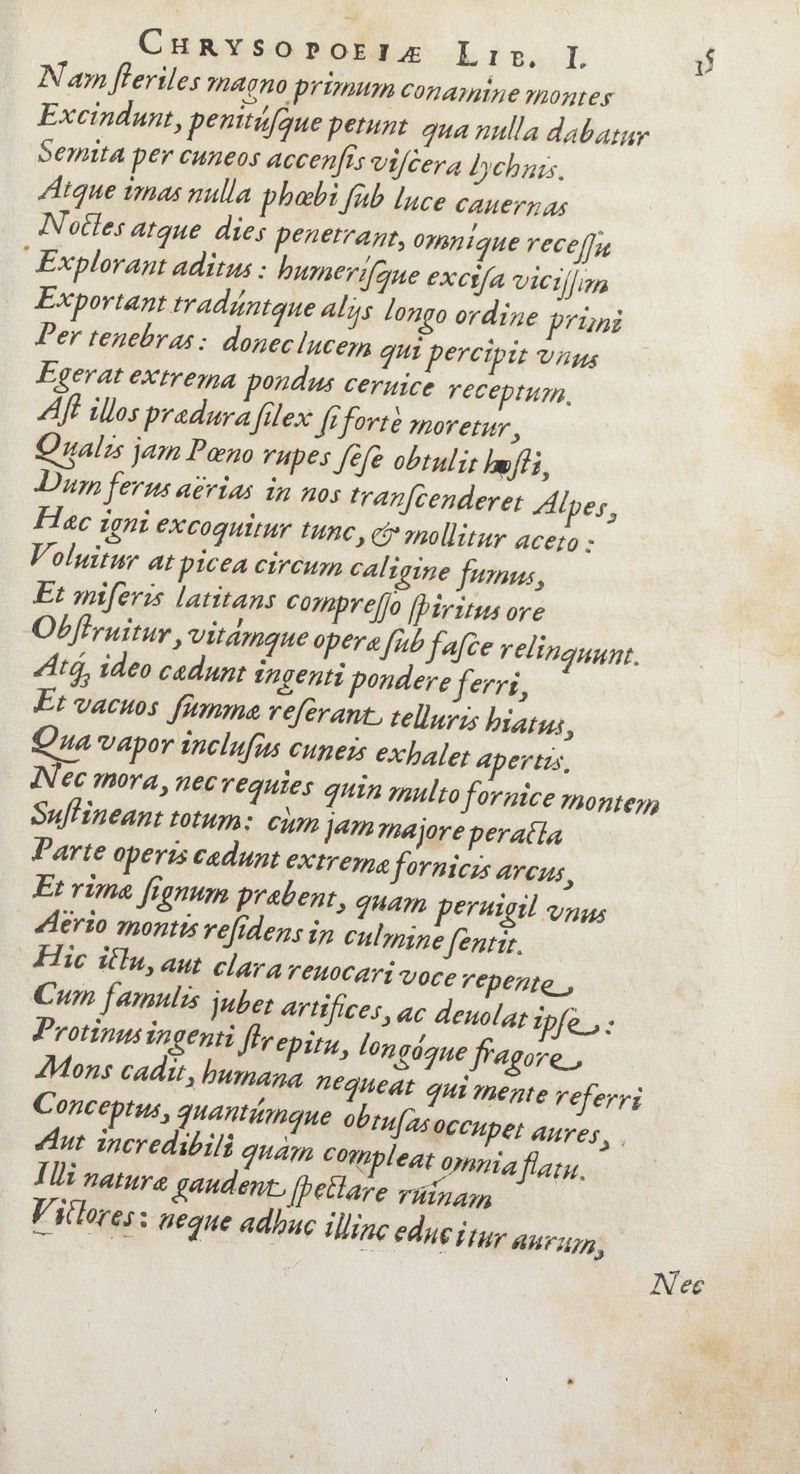 CHRYSOPOEIÆ LIB. I. 15
Nam ſteriles magno primum conamine montes
Excindunt, penitúſque petunt qua nulla dabatur
Semita per cuneos accenſis viſcera lychnis.
Atque imas nulla phœbi ſub luce cauernas
Noctes atque dies penetrant, omníque receſſu
Explorant aditus : humeríſque exciſa viciſſim
Exportant tradúntque alijs longo ordine primi
Per tenebras : donec lucem qui percipit vnus
Egerat extrema pondus ceruice receptum.
Aſt illos prædura ſilex ſi fortè moretur,
Qualis jam Pœno rupes ſeſe obtulit hoſti,
Dum ferus aërias in nos tranſcenderet Alpes,
Hæc igni excoquitur tunc, & mollitur aceto :
Voluitur at picea circum caligine fumus,
Et miſeris latitans compreſſo ſpiritus ore
Obſtruitur, vitámque operæ ſub faſce relinquunt.
Atq; ideo cædunt ingenti pondere ferri,
Et vacuos ſummæ reſerant telluris hiatus,
Qua vapor incluſus cuneis exhalet apertis.
Nec mora, nec requies quin multo fornice montem
Suſtineant totum : cùm jam majore peracta
Parte operis cædunt extremæ fornicis arcus,
Et rimæ ſignum præbent, quam peruigil vnus
Aërio montis reſidens in culmine ſentit.
Hic ictu, aut clara reuocari voce repente
Cum famulis jubet artifices, ac deuolat ipſe :
Protinus ingenti ſtrepitu, longóque fragore
Mons cadit, humana nequeat qui mente referri
Conceptus, quantúmque obtuſas occupet aures,
Aut incredibili quàm compleat omnia flatu.
Illi naturæ gaudent ſpectare ruinam
Victores : neque adhuc illinc educitur aurum,
Nec